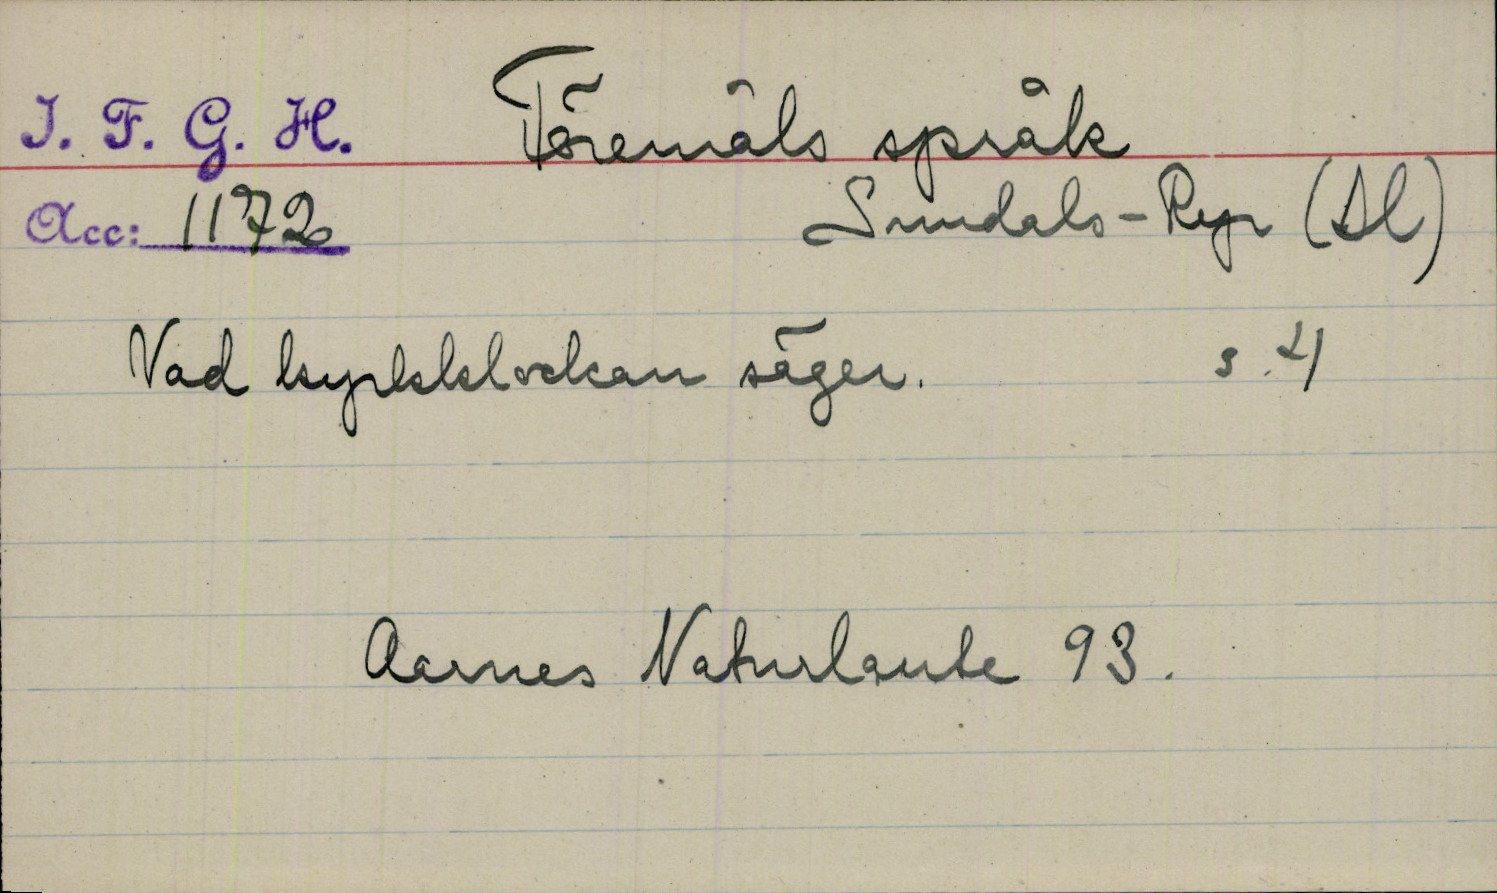 I. F. G. H. Föremåls språk
Acc: 1172 Sundals-Ryr (Dl)
Vad kyrkklockan säger. s. 4
Aarnes Naturlaute 93.